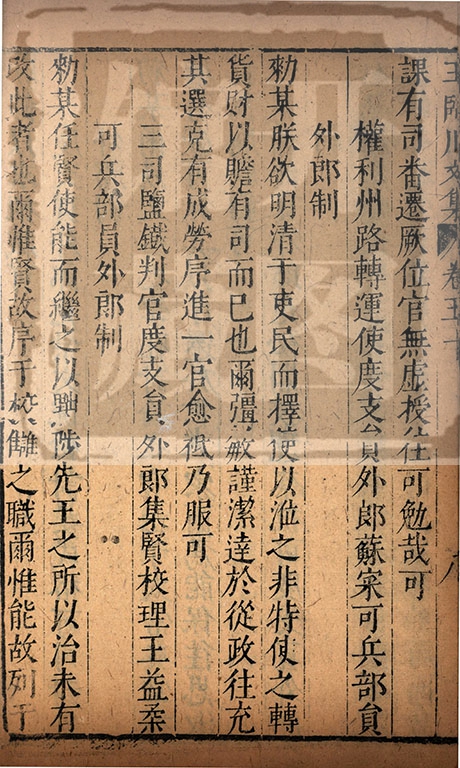 王臨川文集 卷五十
課有司番遷厥位官無虛授往可勉哉可
權利州路轉運使度支貟外郎蘇寀可兵部貟
外郎制
勑某朕欲明清于吏民而擇使以涖之非特使之轉
貨財以贍有司而已也爾彊敏謹潔達於從政往充
其選克有成勞序進一官愈祗乃服可
三司鹽鐵判官度支貟外郎集賢校理王益柔
可兵部員外郎制
勑某任賢使能而繼之以黜陟先王之所以治未有
改此者也爾惟賢故序于校讎之職爾惟能故列于